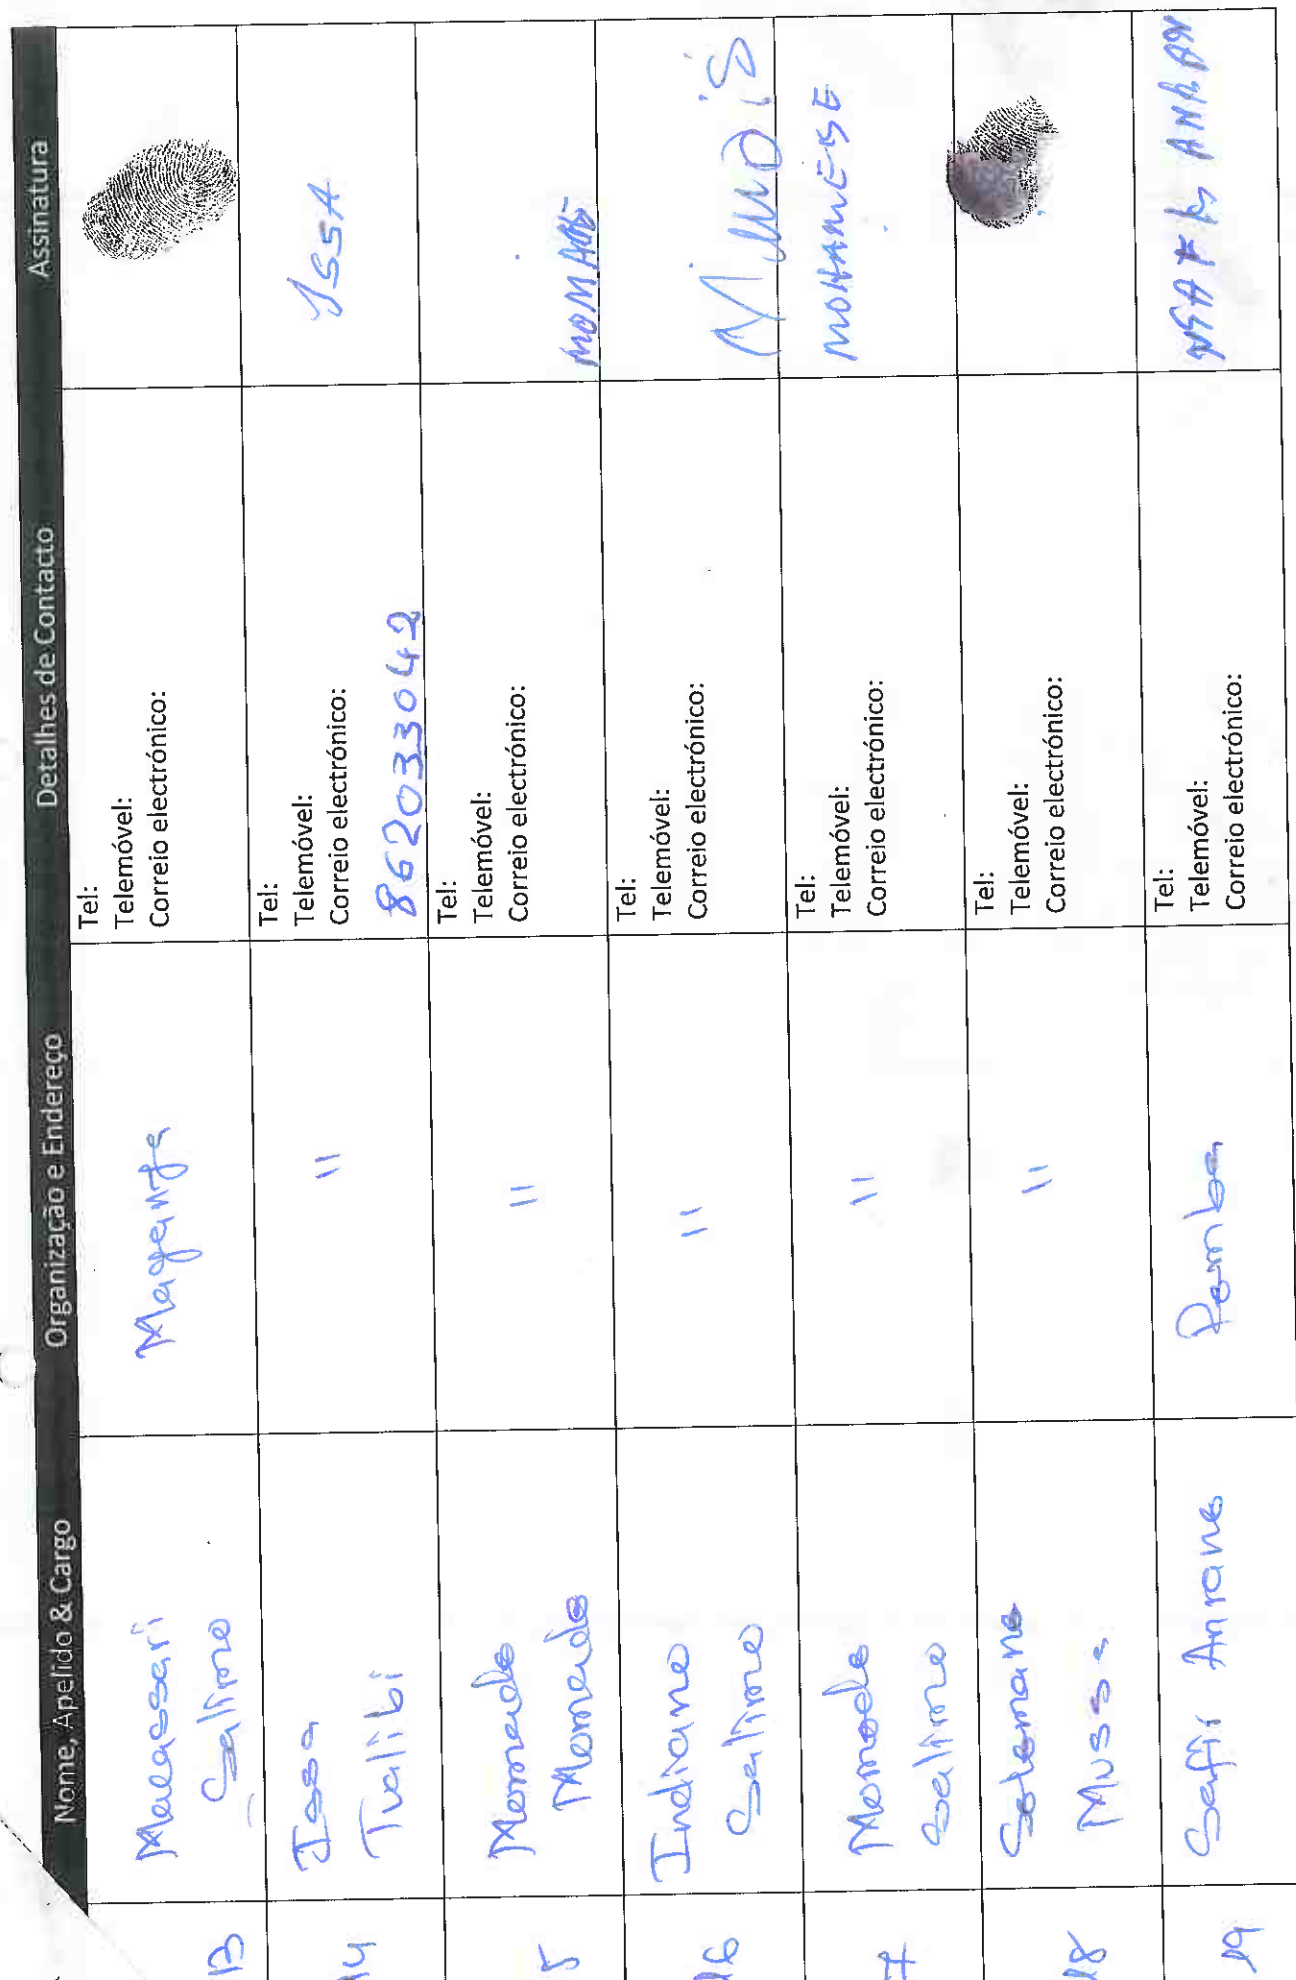 Nome, Apelido & Cargo Organização e Endereço Detalhes de Contacto Assinatura
13 Salimo
Tel:
Telemóvel:
Correio electrónico:
14 Issa
Tualibi
"
Tel:
Telemóvel:
Correio electrónico:
862033042
ISSA
5 Momade
Momade
"
Tel:
Telemóvel:
Correio electrónico:
MOMADE
16 Indiano
Salimo
"
Tel:
Telemóvel:
Correio electrónico:
7 Momade
Salimo
"
Tel:
Telemóvel:
Correio electrónico:
18 Solemane
Mussa
"
Tel:
Telemóvel:
Correio electrónico:
19 Safir Anrane
Pemba
Tel:
Telemóvel:
Correio electrónico: